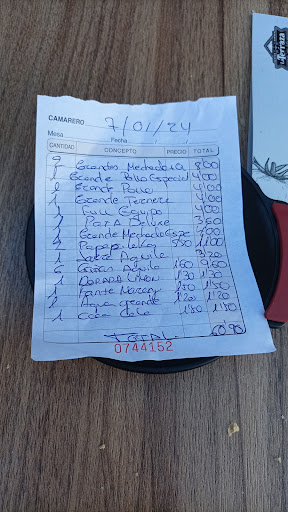 la Terraza
CAMARERO 7/01/24
Mesa Fecha
CANTIDAD CONCEPTO PRECIO TOTAL
2 Grandes Mechada 8'00
1 Grande Pollo Especial 4'00
1 Grande Pollo 4'00
1 Grande Ternera 4'00
1 Full Equipo 4'00
1 Pata Deluxe 3'60
1 Grande Mechada Espe
2 5'50 11'00
1 Aguila 3'20
6 Aguila 1'60 9'60
1 1'30 1'30
1 Fanta Naranj 1'80 1'80
1 Agua grande 1'20 1'20
1 Coca Cola 1'80 1'80
TOTAL 60'90
0744152